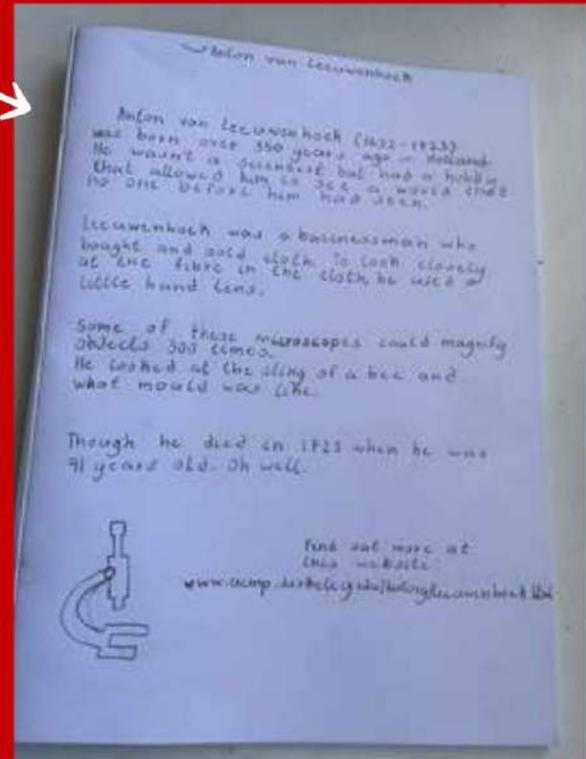 Anton van Leeuwenhoek
Anton van Leeuwenhoek (1632-1723)
was born over 350 years ago in Holland
He wasn't a scientist but had a hobby
that allowed him to see a world that
no one before him had seen.
Leeuwenhoek was a businessman who
bought and sold cloth. To look closely
at the fibre in the cloth, he used a
little hand lens.
Some of these microscopes could magnify
objects 300 times.
He looked at the sting of a bee and
what mould was like.
Though he died in 1723 when he was
91 years old. Oh well.
Find out more at
this website: